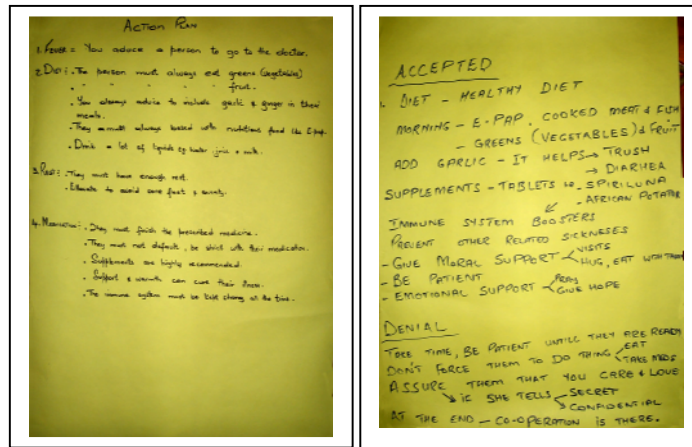 ACTION PLAN
1. FEVER = You advice a person to go to the doctor.
2. DIET: . The person must always eat greens (vegetables)
. " " " " " fruit.
. You always advice to include garlic & ginger in their
meals.
. They must always based with nutritious food like E-pap.
. Drink a lot of liquids eg water, juice & milk.
3. REST: . They must have enough rest.
. to avoid & anxiety.
4. MEDICATION: . They must finish the prescribed medicine.
. They must not default, be strict with their medication.
. Supplements are highly recommended.
. Support & warmth can cure their illness.
. The immune system must be kept strong all the time.
ACCEPTED
. DIET - HEALTHY DIET
MORNING - E-PAP. COOKED MEAT & FISH
- GREENS (VEGETABLES) & FRUIT
ADD GARLIC - IT HELPS → TRUSH
→ DIARHEA
SUPPLEMENTS - TABLETS - SPIRILUNA
- AFRICAN POTATOE
IMMUNE SYSTEM BOOSTERS
PREVENT OTHER RELATED SICKNESES
- GIVE MORAL SUPPORT < VISITS
HUG, EAT WITH THEM
- BE PATIENT
- EMOTIONAL SUPPORT < PRAY
GIVE HOPE
DENIAL
TAKE TIME, BE PATIENT UNTILL THEY ARE READY
DON'T FORCE THEM TO DO THING < EAT
TAKE MEDS
ASSURE THEM THAT YOU CARE & LOVE
→ IF SHE TELLS < SECRET
CONFIDENTIAL
AT THE END - CO-OPERATION IS THERE.